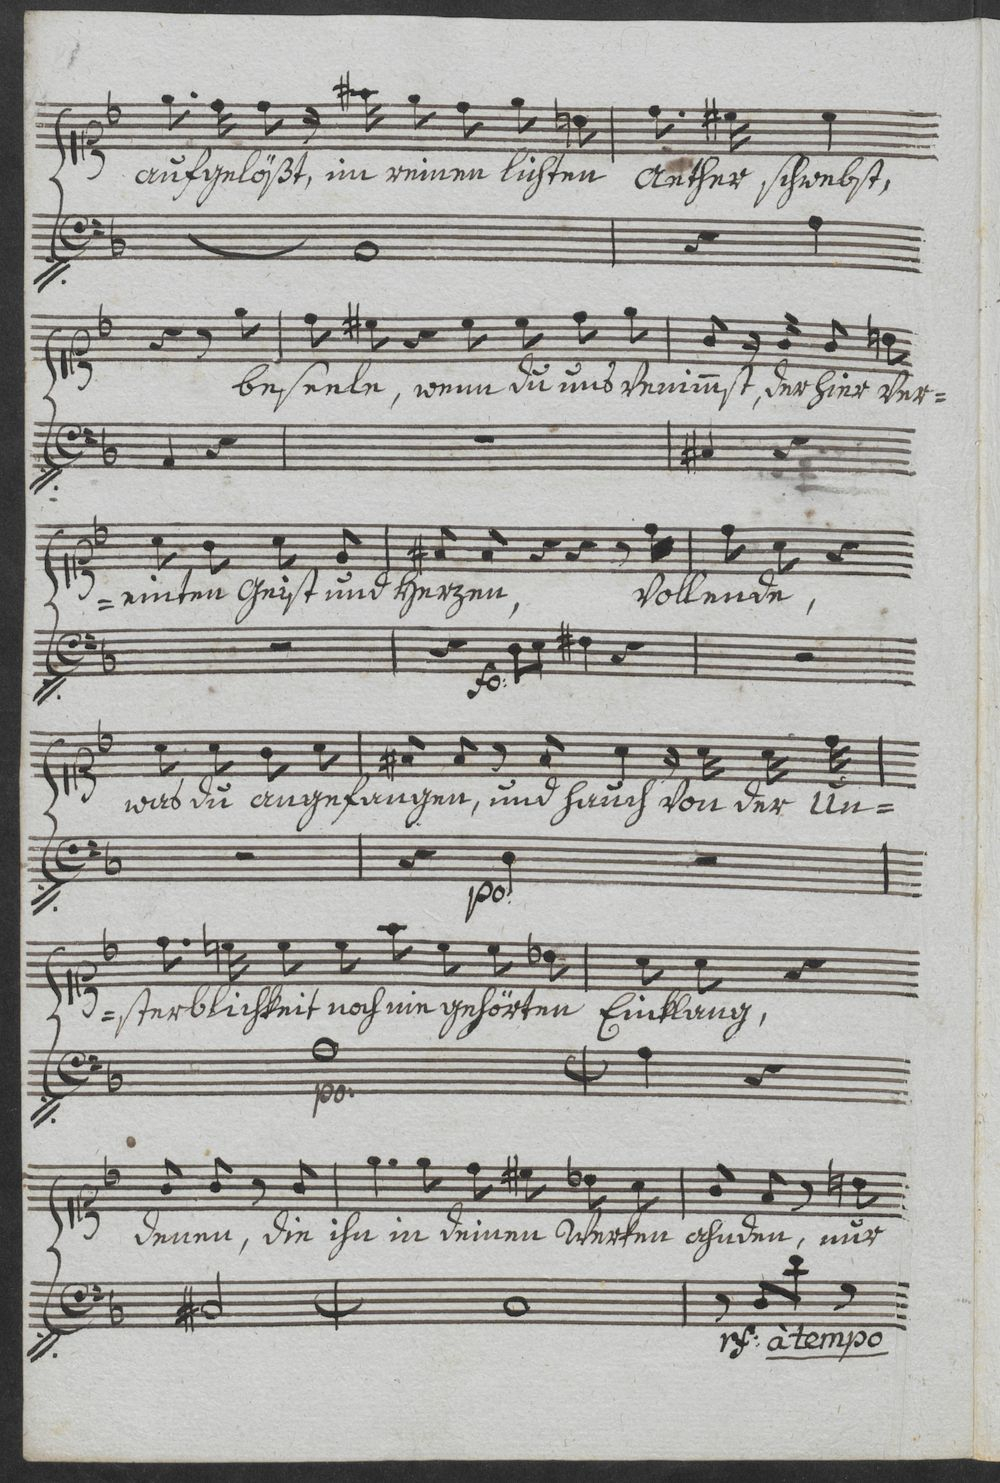 aufgelößt, im reinen lichten Aether schwebst,
beseele, wenn du uns Vernim̄st, der hier ver=
=einten Geist und Herzen, Vollende,
fo:
was du angefangen, und hauch von der Un=
po:
=sterblichkeit noch nie gehörten Einklang,
po:
denen, die ihn in deinen Werken ahnden, nur
rf: à tempo